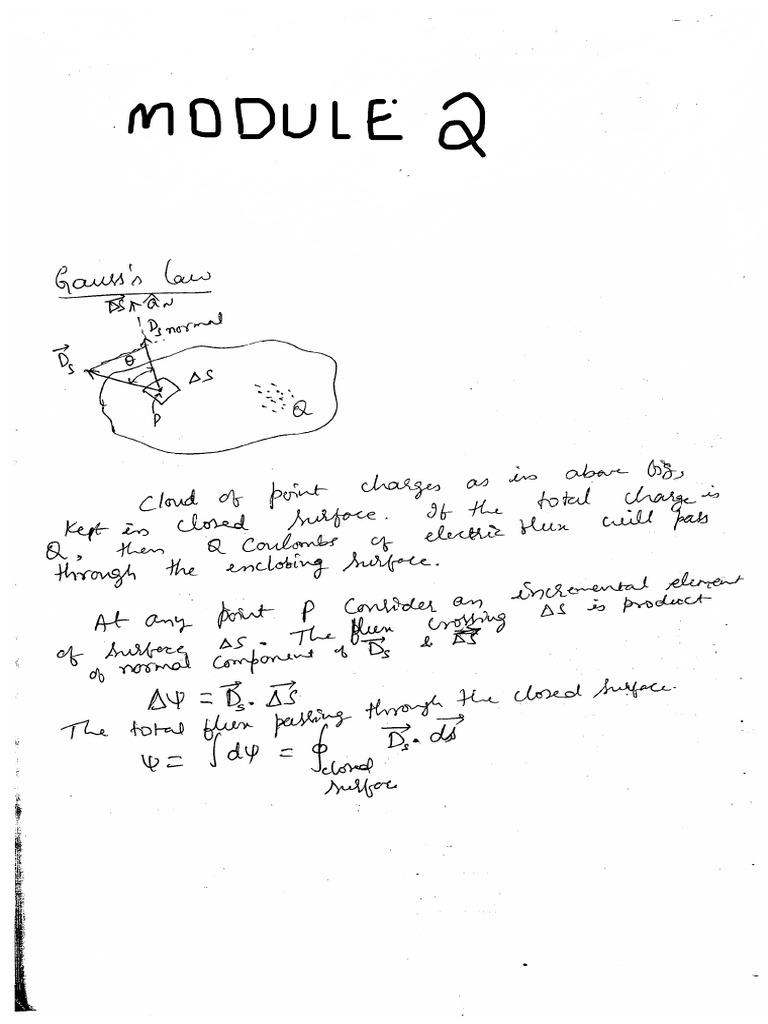 MODULE 2
Gauss's law
ΔS âN
Ds normal
Ds
θ
ΔS
Q
P
Cloud of point charges as in above fig,
kept in closed surface. If the total charge is
Q, then Q Coulombs of electric flux will pass
through the enclosing surface.
At any point P consider an incremental element
of surface ΔS. The flux crossing ΔS is product
of normal component of D⃗s & ΔS⃗
Δψ = D⃗s . ΔS⃗
The total flux passing through the closed surface.
ψ = ∫dψ = ∮ D⃗s . ds⃗
closed
surface